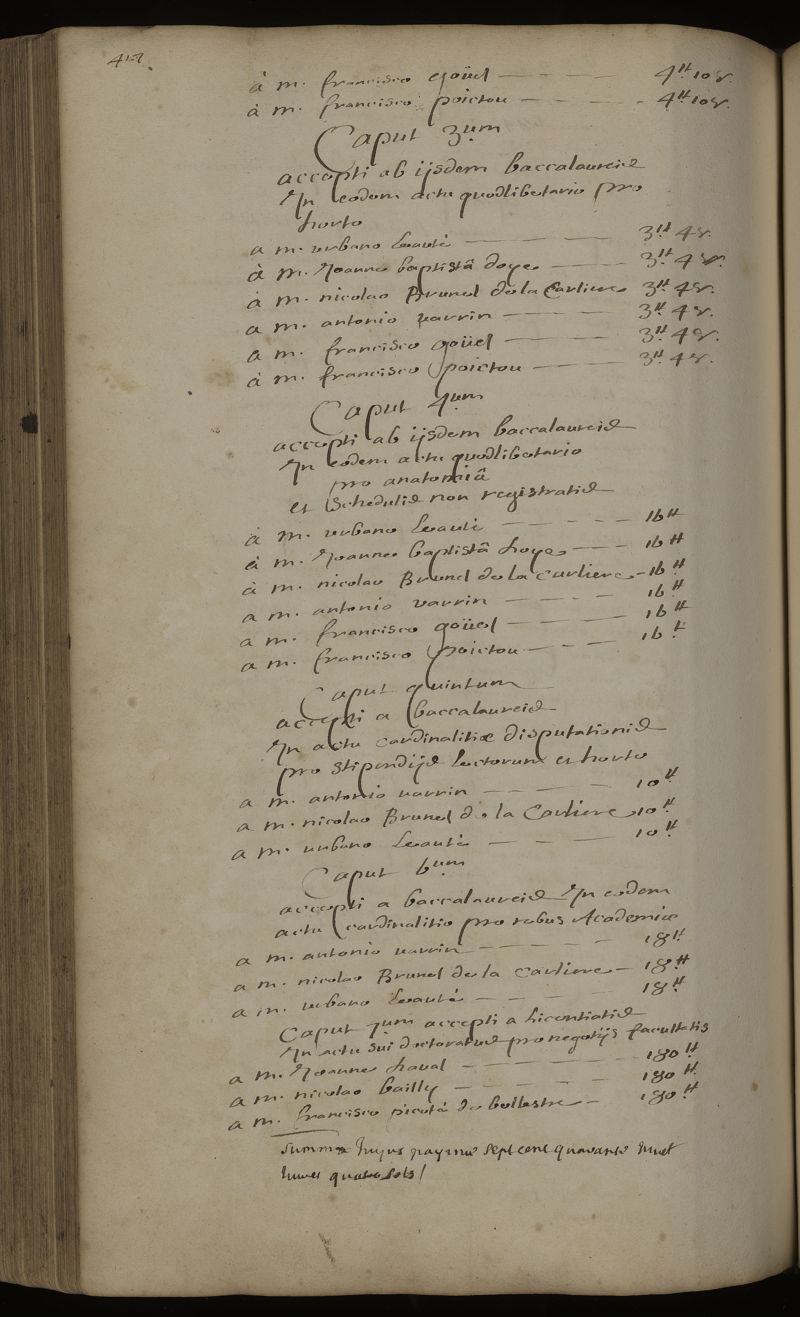 à m. francisco goüel — — — 4ᵗᵗ 10 s.
à m. francisco poictou — — — 4ᵗᵗ 10 s.
Caput 3um
accepti ab ijsdem baccalaureis
In eodem actu quodlibetario pro
horto
a m. urbano Leaulté — — — 3ᵗᵗ 4 s.
à m. Joanne baptistâ doye — — 3ᵗᵗ 4 s.
à m. nicolao Brunel de la Carliere 3ᵗᵗ 4 s.
a m. antonio varrin — — — 3ᵗᵗ 4 s.
a m. francisco goüel — — — 3ᵗᵗ 4 s.
à m. francisco poictou — — — 3ᵗᵗ 4 s.
Caput 4um
accepti ab ijsdem baccalaureis
In eodem actu quodlibetario
pro anatomiâ
et schedulis non registratis
à m. urbano Leaulté — — — 16ᵗᵗ
à m. Joanne baptistâ doye — — 16ᵗᵗ
à m. nicolao Brunel de la Carliere — 16ᵗᵗ
a m. antonio varrin — — — 16ᵗᵗ
a m. francisco goüel — — — 16ᵗᵗ
a m. francisco poictou — — — 16ᵗᵗ
Caput quintum
accepti a baccalaureis
In actu cardinalitiæ disputationis
pro stipendijs lectorum et horto
a m. antonio varrin — — — 10ᵗᵗ
a m. nicolao Brunel de la Carliere 10ᵗᵗ
a m. urbano Leaulté — — — 10ᵗᵗ
Caput 6um
accepti a baccalaureis In eodem
actu cardinalitio pro rebus Academiæ
a m. antonio varrin — — — 18ᵗᵗ
a m. nicolao Brunel de la Carliere — 18ᵗᵗ
a m. urbano Leaulté — — — 18ᵗᵗ
Caput 7um accepti a licentiatis
In actu sui doctoratus pro negotijs facultatis
a m. Joanne — — — 180ᵗᵗ
a m. nicolao bailly — — — 180ᵗᵗ
a m. francisco picoté de bellestre — 180ᵗᵗ
Summa hujus paginæ sept cent quarante huict
livres quatre sols /